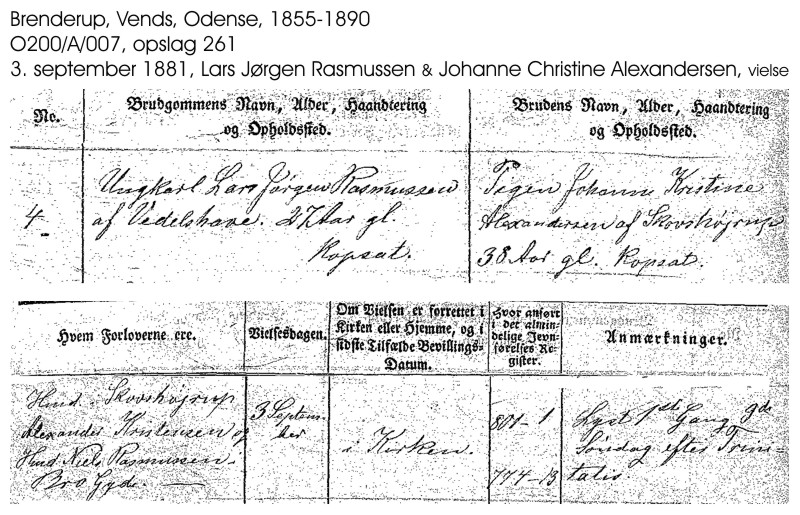 Brenderup, Vends, Odense, 1855-1890
O200/A/007, opslag 261
3. september 1881, Lars Jørgen Rasmussen & Johanne Christine Alexandersen, vielse
No.
Brudgommens Navn, Alder, Haandtering
og Opholdssted.
Brudens Navn, Alder, Haandtering
og Opholdssted.
4.
Ungkarl Lars Jørgen Rasmussen
af Vedelshave. 27 Aar gl.
Kopsat.
Pigen Johanne Kristine
Alexandersen af Skovshøjrup
38 Aar gl. Kopsat.
Hvem Forloverne ere.
Vielsesdagen.
Om Vielsen er forrettet i
Kirken eller Hjemme, og i
sidste Tilfælde Bevillings-
Datum.
Hvor anført
i det almin-
delige Jevn-
førelses Re-
gister.
Anmærkninger.
Hmd. Skovshøjrup
Alexander Kristensen og
Hmd. Niels Rasmussen
Bro Gyde.
3 Septem-
ber
i Kirken.
801-1
774-13
Lyst 1ste Gang 9de
Søndag efter Trini-
tatis.